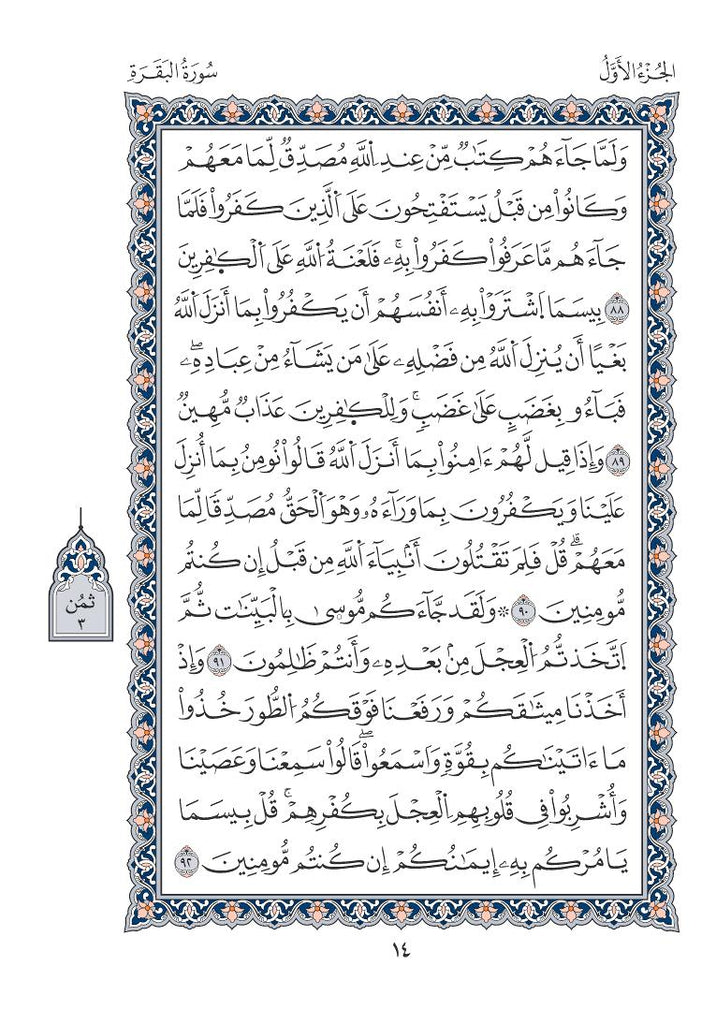 الجُزْءُ الأَوَّلُ
سُورَةُ البَقَرَةِ
وَلَمَّا جَآءَهُمْ كِتَٰبٞ مِّنْ عِندِ اِ۬للَّهِ مُصَدِّقٞ لِّمَا مَعَهُمْ
وَكَانُواْ مِن قَبْلُ يَسْتَفْتِحُونَ عَلَى اَ۬لَّذِينَ كَفَرُواْ فَلَمَّا
جَآءَهُم مَّا عَرَفُواْ كَفَرُواْ بِهِۦۚ فَلَعْنَةُ اُ۬للَّهِ عَلَى اَ۬لْكٰ۪فِرِينَ
٨٨ بِيسَمَا اَ۪شْتَرَوْاْ بِهِۦٓ أَنفُسَهُمْ أَن يَكْفُرُواْ بِمَآ أَنزَلَ اَ۬للَّهُ
بَغْياً أَن يُنزِلَ اَ۬للَّهُ مِن فَضْلِهِۦ عَلَىٰ مَن يَشَآءُ مِنْ عِبَادِهِۦۖ
فَبَآءُو بِغَضَبٍ عَلَىٰ غَضَبٖۚ وَلِلْكٰ۪فِرِينَ عَذَابٞ مُّهِينٞ
٨٩ وَإِذَا قِيلَ لَهُمْ ءَامِنُواْ بِمَآ أَنزَلَ اَ۬للَّهُ قَالُواْ نُومِنُ بِمَآ أُنزِلَ
عَلَيْنَا وَيَكْفُرُونَ بِمَا وَرَآءَهُۥ وَهْوَ اَ۬لْحَقُّ مُصَدِّقاٗ لِّمَا
مَعَهُمْۗ قُلْ فَلِمَ تَقْتُلُونَ أَنۢبِيَآءَ اَ۬للَّهِ مِن قَبْلُ إِن كُنتُم
مُّومِنِينَ ٩٠ ۞ وَلَقَد جَّآءَكُم مُّوس۪ىٰ بِالْبَيِّنَٰتِ ثُمَّ
اَ۪تَّخَذتُّمُ اُ۬لْعِجْلَ مِنۢ بَعْدِهِۦ وَأَنتُمْ ظَٰلِمُونَ ٩١ وَإِذْ
أَخَذْنَا مِيثَٰقَكُمْ وَرَفَعْنَا فَوْقَكُمُ اُ۬لطُّورَ خُذُواْ
مَآ ءَاتَيْنَٰكُم بِقُوَّةٖ وَاسْمَعُواْۖ قَالُواْ سَمِعْنَا وَعَصَيْنَا
وَأُشْرِبُواْ فِي قُلُوبِهِمِ اِ۬لْعِجْلَ بِكُفْرِهِمْۚ قُلْ بِيسَمَا
يَامُرْكُم بِهِۦٓ إِيمَٰنُكُمْ إِن كُنتُم مُّومِنِينَ ٩٢
ثُمُن
٣
١٤